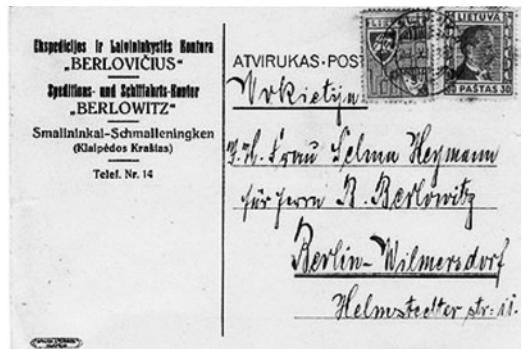 Ekspedicijos ir Laivininkystės Kontora
„BERLOVIČIUS“
Speditions- und Schiffahrts-Kontor
„BERLOWITZ“
Smalininkai-Schmalleningken
(Klaipėdos Kraštas)
Telef. Nr. 14
ATVIRUKAS-POST
LIETUVA
PAŠTAS 30
Vokietija
Frau Selma Heymann
für Herrn B. Berlowitz
Berlin-Wilmersdorf
Helmstedter str: 11.